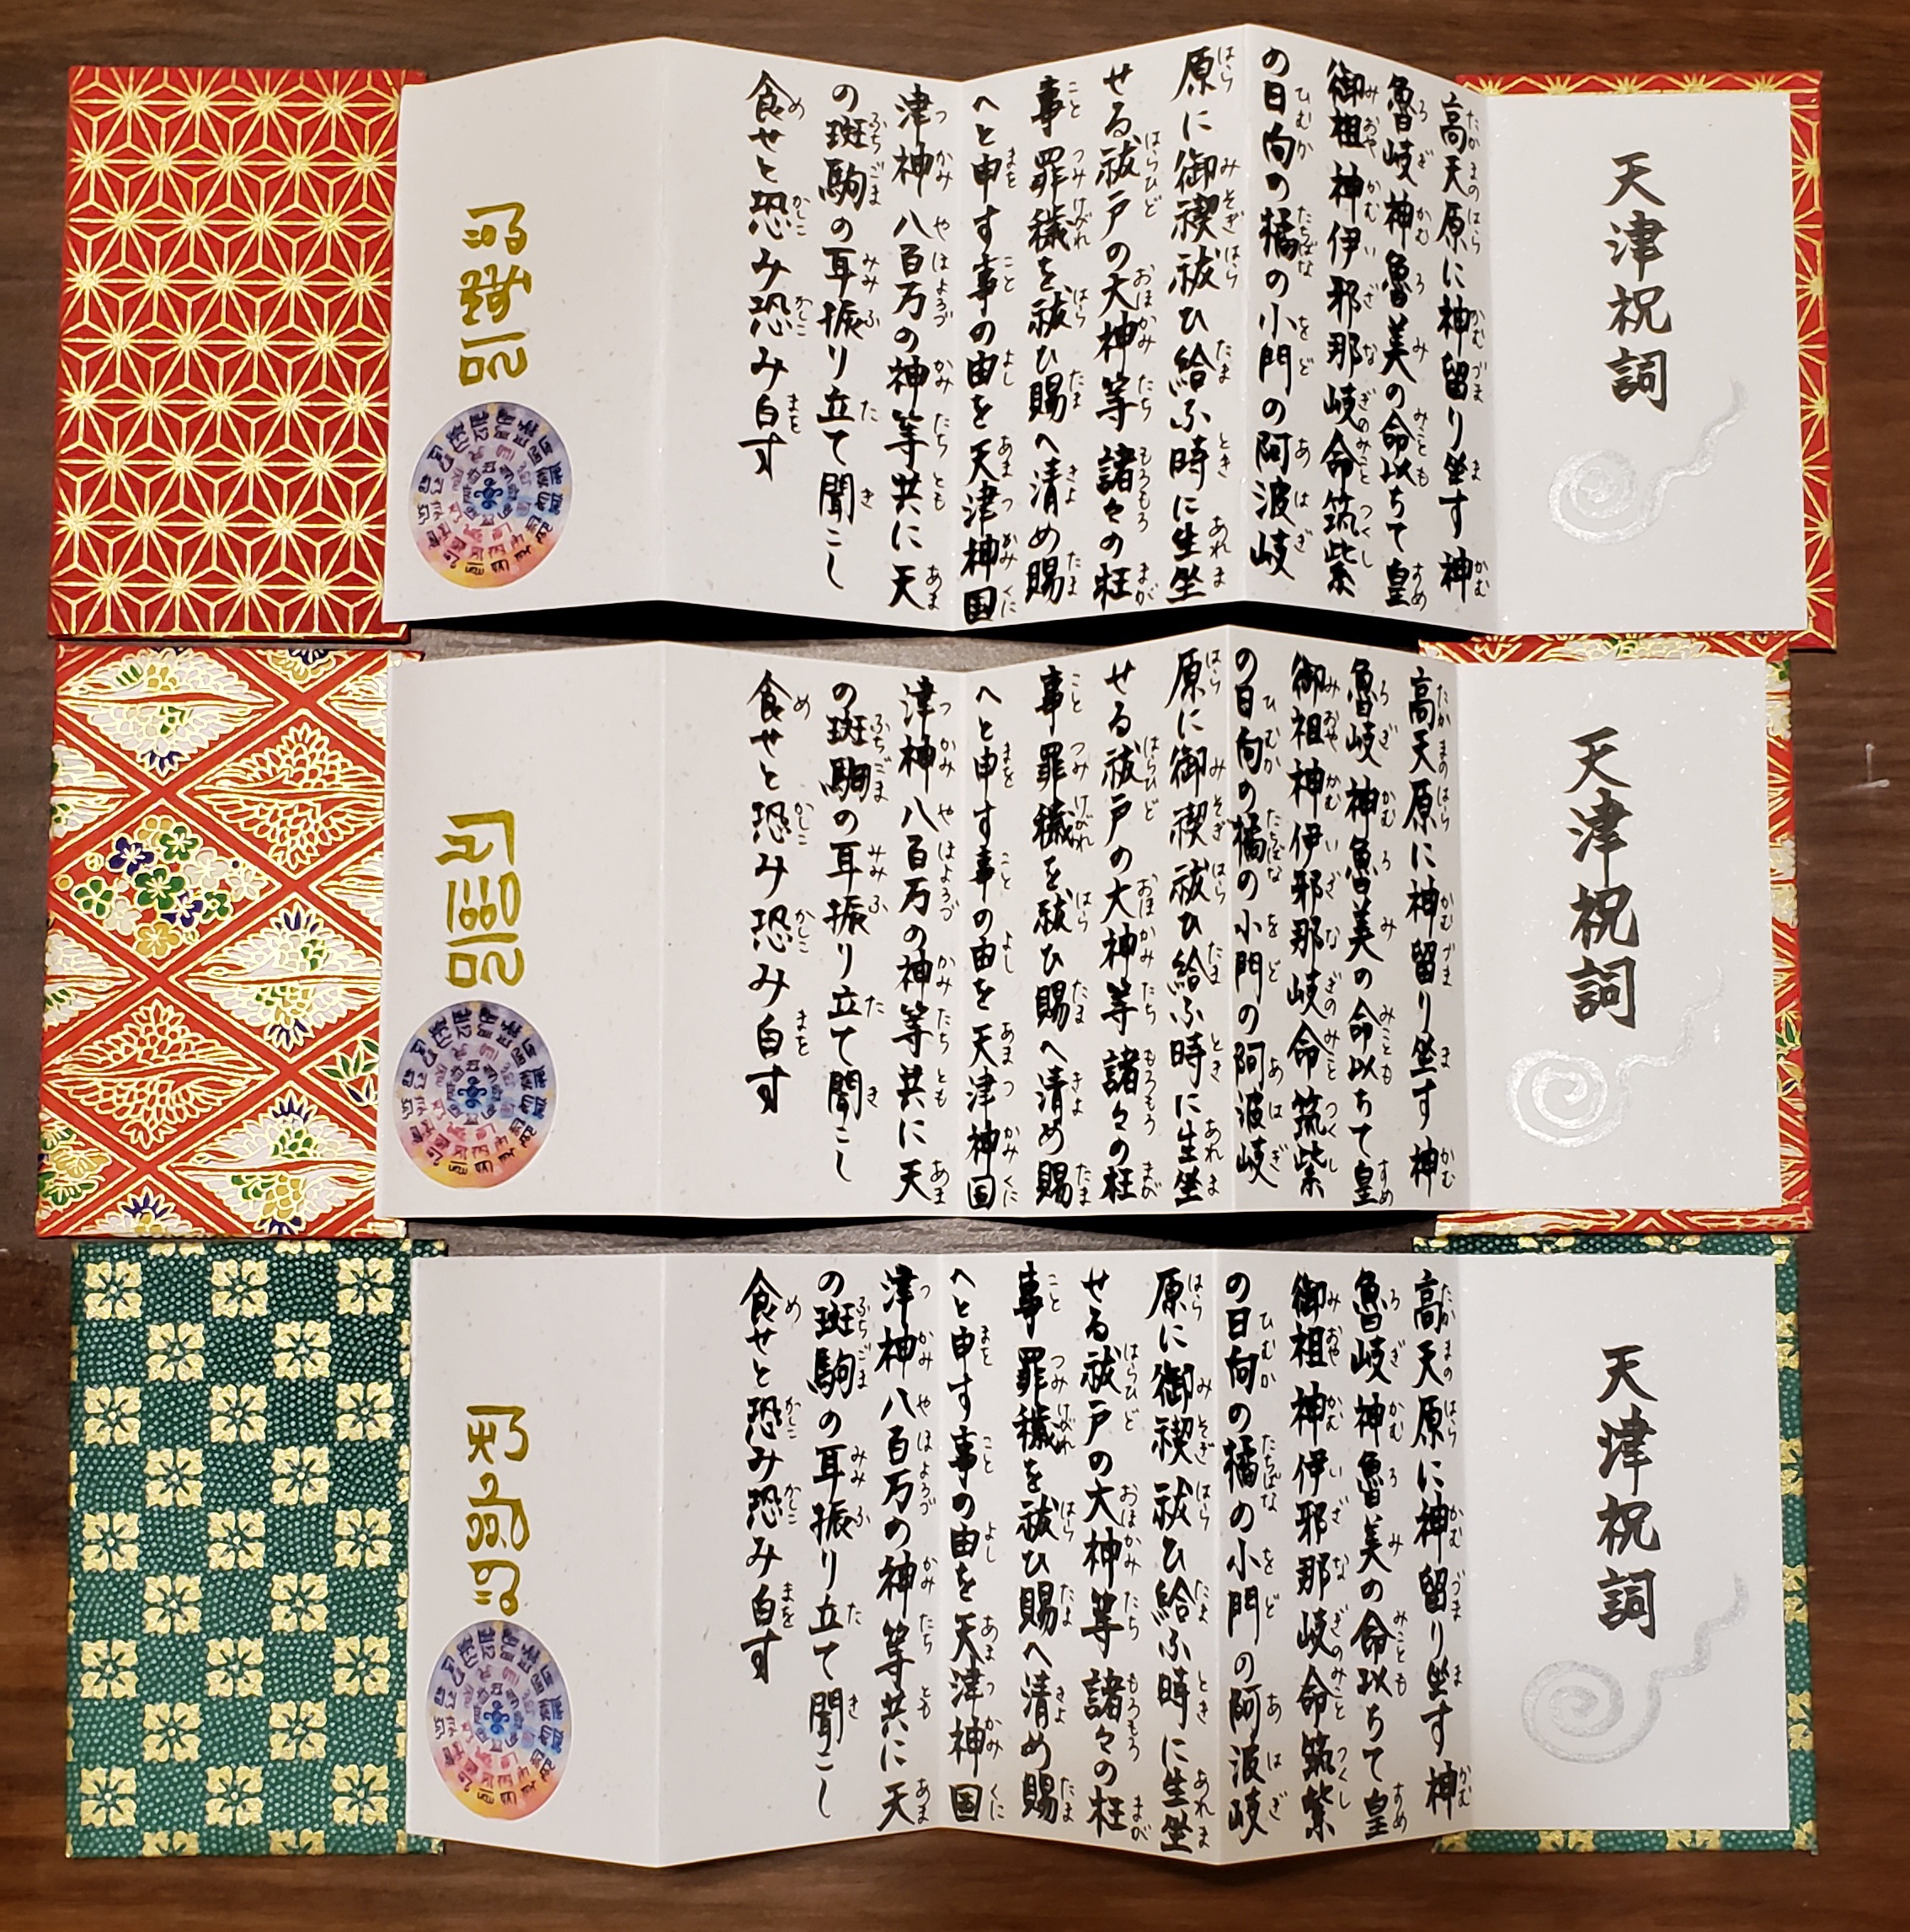 天津祝詞
高天原に神留り坐す神
魯岐神魯美の命以ちて皇
御祖神伊邪那岐命筑紫
の日向の橘の小門の阿波岐
原に御禊祓ひ給ふ時に生坐
せる祓戸の大神等諸々の枉
事罪穢を祓ひ賜へ清め賜
へと申す事の由を天津神国
津神八百万の神等共に天
の斑駒の耳振り立て聞こし
食せと恐み恐み白す
天津祝詞
高天原に神留り坐す神
魯岐神魯美の命以ちて皇
御祖神伊邪那岐命筑紫
の日向の橘の小門の阿波岐
原に御禊祓ひ給ふ時に生坐
せる祓戸の大神等諸々の枉
事罪穢を祓ひ賜へ清め賜
へと申す事の由を天津神国
津神八百万の神等共に天
の斑駒の耳振り立て聞こし
食せと恐み恐み白す
天津祝詞
高天原に神留り坐す神
魯岐神魯美の命以ちて皇
御祖神伊邪那岐命筑紫
の日向の橘の小門の阿波岐
原に御禊祓ひ給ふ時に生坐
せる祓戸の大神等諸々の枉
事罪穢を祓ひ賜へ清め賜
へと申す事の由を天津神国
津神八百万の神等共に天
の斑駒の耳振り立て聞こし
食せと恐み恐み白す